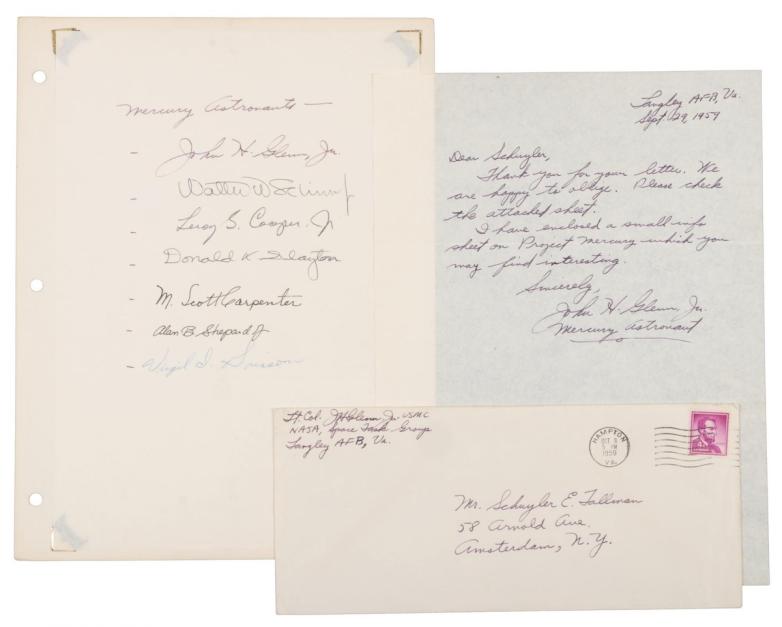 Mercury Astronauts —
- John H. Glenn, Jr.
- Walter M Schirra Jr
- Leroy G. Cooper, Jr
- Donald K Slayton
- M. Scott Carpenter
- Alan B. Shepard Jr
- Virgil I. Grissom
Langley AFB, Va.
Sept. 29, 1959
Dear Schuyler,
Thank you for your letter. We
are happy to oblige. Please check
the attached sheet.
I have enclosed a small info
sheet on Project Mercury which you
may find interesting.
Sincerely,
John H. Glenn, Jr.
Mercury Astronaut
Lt. Col. JH Glenn Jr. USMC
NASA, Space Task Group
Langley AFB, Va.
HAMPTON
OCT 9
5 PM
1959
VA.
Mr. Schuyler E. Tallman
58 Arnold Ave.
Amsterdam, N.Y.